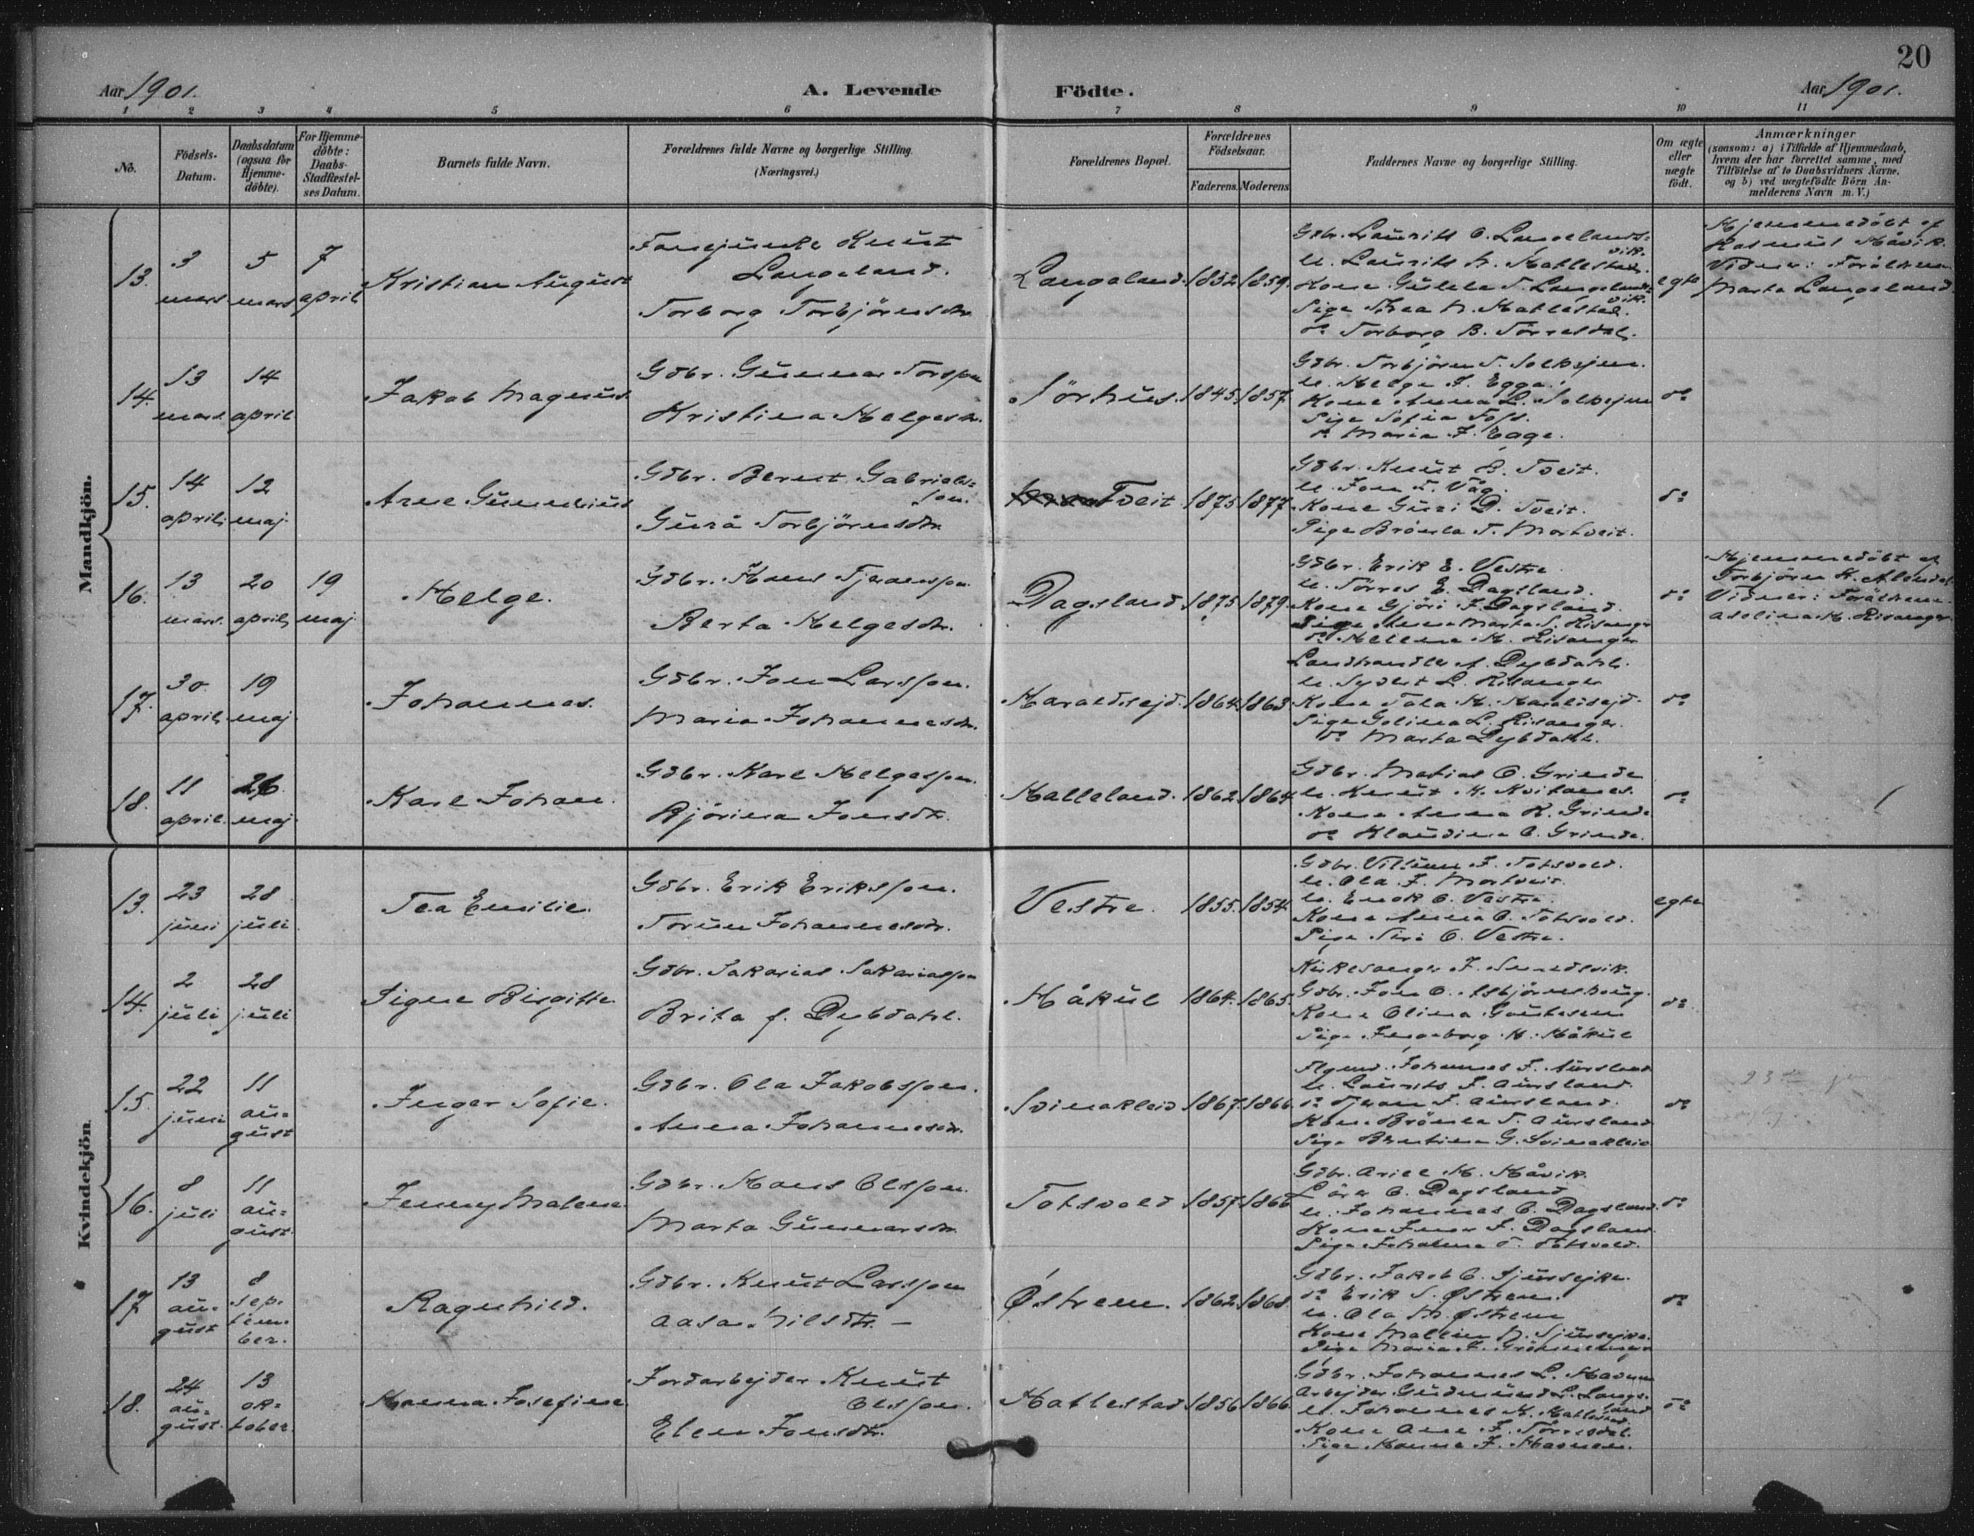 20
Aar 1901.
A. Levende Födte.
Aar 1901.
1 2 3 4 5 6 7 8 9 10 11
No.
Födsels-Datum.
Daabsdatum (ogsaa for Hjemme-döbte).
For Hjemme-döbte: Daabs-Stadfæstel-ses Datum.
Barnets fulde Navn.
Forældrenes fulde Navne og borgerlige Stilling. (Næringsvei.)
Forældrenes Bopæl.
Forældrenes Födselsaar.
Faderens. Moderens
Faddernes Navne og borgerlige Stilling.
Om ægte eller uægte födt.
Anmærkninger
(saasom: a) i Tilfælde af Hjemmedaab,
hvem der har forrettet samme, med
Tilföielse af to Daabsvidners Navne,
og b) ved uægtefödte Börn An-
melderens Navn m. V.)
Mandkjön.
13. 3 mars 5 mars 7 april
Kristian August
Knut
Langeland.
Torborg Torbjörnsdtr.
Langeland. 1852 1859.
Gdbr. Laurits O. Langelands-
vik.
U. Laurits N. Hatlestad.
Kone Gunla T. Langelands-
vik.
Pige Thea N. Hatlestad.
do Torborg B. Törresdal.
egte
Hjemmedöbt af
Rasmus Håvik.
Vidner: Forældrene
Marta Langeland.
14. 13 mars 14 april.
Jakob Magnus.
Gdbr. Gunnar Torsson
Kristina Helgesdtr.
Sörhus. 1845. 1857.
Gdbr. Torbjörn T. Solheim.
U. Helge J. Egge.
Kone Anna L. Solheim
Pige Sofia Toss.
do Maria J. Egge.
do
15. 14 april 12 maj.
Arne Gunnerius
Gdbr. Bernt Gabriels-
son.
Gurå Torbjörnsdtr.
Tveit 1875 1877.
Gdbr. Knut B. Tveit.
U. Jon T. Våg.
Kone Guri D. Tveit.
Pige Brönla T. Mortveit.
do
16. 13 mars. 20 april 19 maj
Helge.
Gdbr. Hans Tjransson.
Berta Helgesdtr.
Dagsland. 1875 1879.
Gdbr. Erik E. Vestre.
U. Törres E. Dagsland.
Kone Gjöri J. Dagsland.
Pige Anna Marta S. Risanger
do Hellena H. Risanger
do
Hjemmedöbt af
Torbjörn K.
Vidner: Forældrene
Adelina H. Risanger.
17. 30 april. 19 maj
Johannes.
Gdbr. Jon Larsson.
Maria Johannesdtr.
Haraldsejd. 1864. 1863
Landhandler A. Dybdahl.
U. Syvert L. Risanger
Kone Tala H. Haraldsejd.
Pige Golina L. Risanger.
do Marta Dybdahl.
do
18. 11 april. 26 maj
Karl Johan.
Gdbr. Karl Helgesson.
Björina Jonsdtr.
Halleland. 1862. 1864.
Gdbr. Matias O. Grinde
U. Knut K. Kvitanes.
Kone Anna K. Grinde
do Klaudina O. Grinde.
do
Kvindekjön.
13. 23 juni 28 juli
Tea Emilie.
Gdbr. Erik Eriksson.
Torun Johannesdtr.
Vestre. 1855. 1854.
Gdbr. Villum J. Totsvold.
U. Ola J. Mortveit.
U. Enok O. Vestre.
Kone Anna O. Totsvold.
Pige Siri O. Vestre.
egte
14. 2 juli 28 juli
Signe Birgitte.
Gdbr. Sakarias Sakariasson
Brita f. Dybdahl.
Håkul 1864. 1865.
Kirkesanger J. Sundsvik.
Gdbr. Jon O. Asbjörnshaug.
Kone Olina Gautesen
Pige Ingeborg H. Håkul
do
15. 22 juni 11 au-
gust
Inger Sofie.
Gdbr. Ola Jakobsson.
Anna Johannesdtr.
Svinakleiv 1867. 1866.
Johannes J. Aursland
U. Laurits J. Aursland.
do Tjran J. Aursland.
Kone Brönla T. Aursland
Pige Bentina G. Svinakleiv
do
16. 8 juli 11 au-
gust.
Jenny Malene.
Gdbr. Hans Olsson.
Marta Gunnarsdtr.
Totsvold 1857. 1866
Gdbr. Ariel H. Håvik.
Lärer O. Dagsland
U. Johannes O. Dagsland
Kone Inger J. Dagsland
Pige Johanna T. Totsvold.
do
17. 13 au-
gust 8 sep-
tem-
ber.
Ragnhild.
Gdbr. Knut Larsson
Aasa Nilsdtr. —
Östrem. 1862. 1868.
Gdbr. Jakob O. Sjursejke.
do Erik S. Östrem.
U. Ola M. Östrem
Kone Mallin N. Sjursejke.
Pige Maria K.
do
18. 24 au-
gust. 13 ok-
tober.
Hanna Josefine
Jordarbejder Knut
Olsson.
Elen Jonsdtr.
Hatlestad 1856 1866.
Gdbr. Johannes L. Havnen
Arbejder Gudmund L. Langeland
U. Johannes H. Hatlestad
Kone Ane J. Törresdal.
Pige Hanna J. Havnen.
do